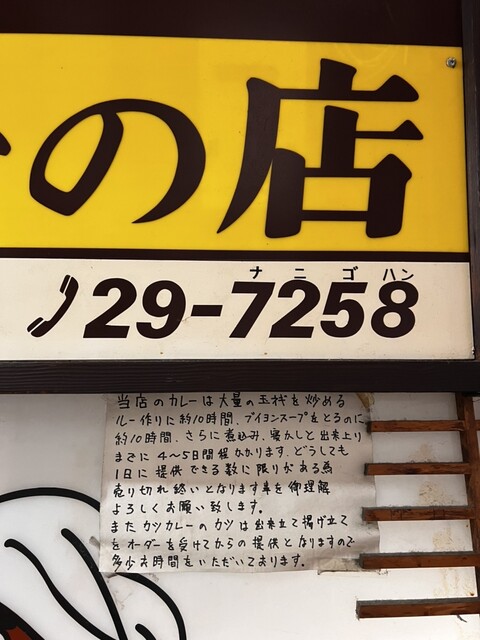 の店
ナニゴハン
29-7258
当店のカレーは大量の玉ねぎを炒める
ルー作りに約10時間、ブイヨンスープをとるのに
約10時間、さらに煮込み、寝かしと出来上り
までに4〜5日間程かかります。どうしても
1日に提供できる数に限りがある為
売り切れ終いとなります事を御理解
よろしくお願い致します。
またカツカレーのカツは出来立て揚げ立て
をオーダーを受けてからの提供となりますので
多少お時間をいただいております。